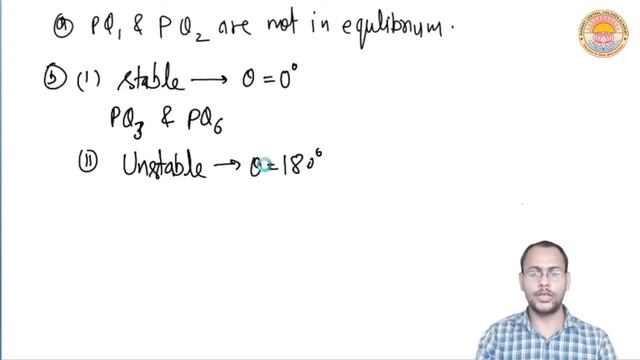 (a) PQ₁ & PQ₂ are not in equlibrium.
(b) (i) stable → θ = 0°
PQ₃ & PQ₆
(ii) Unstable → θ = 180°